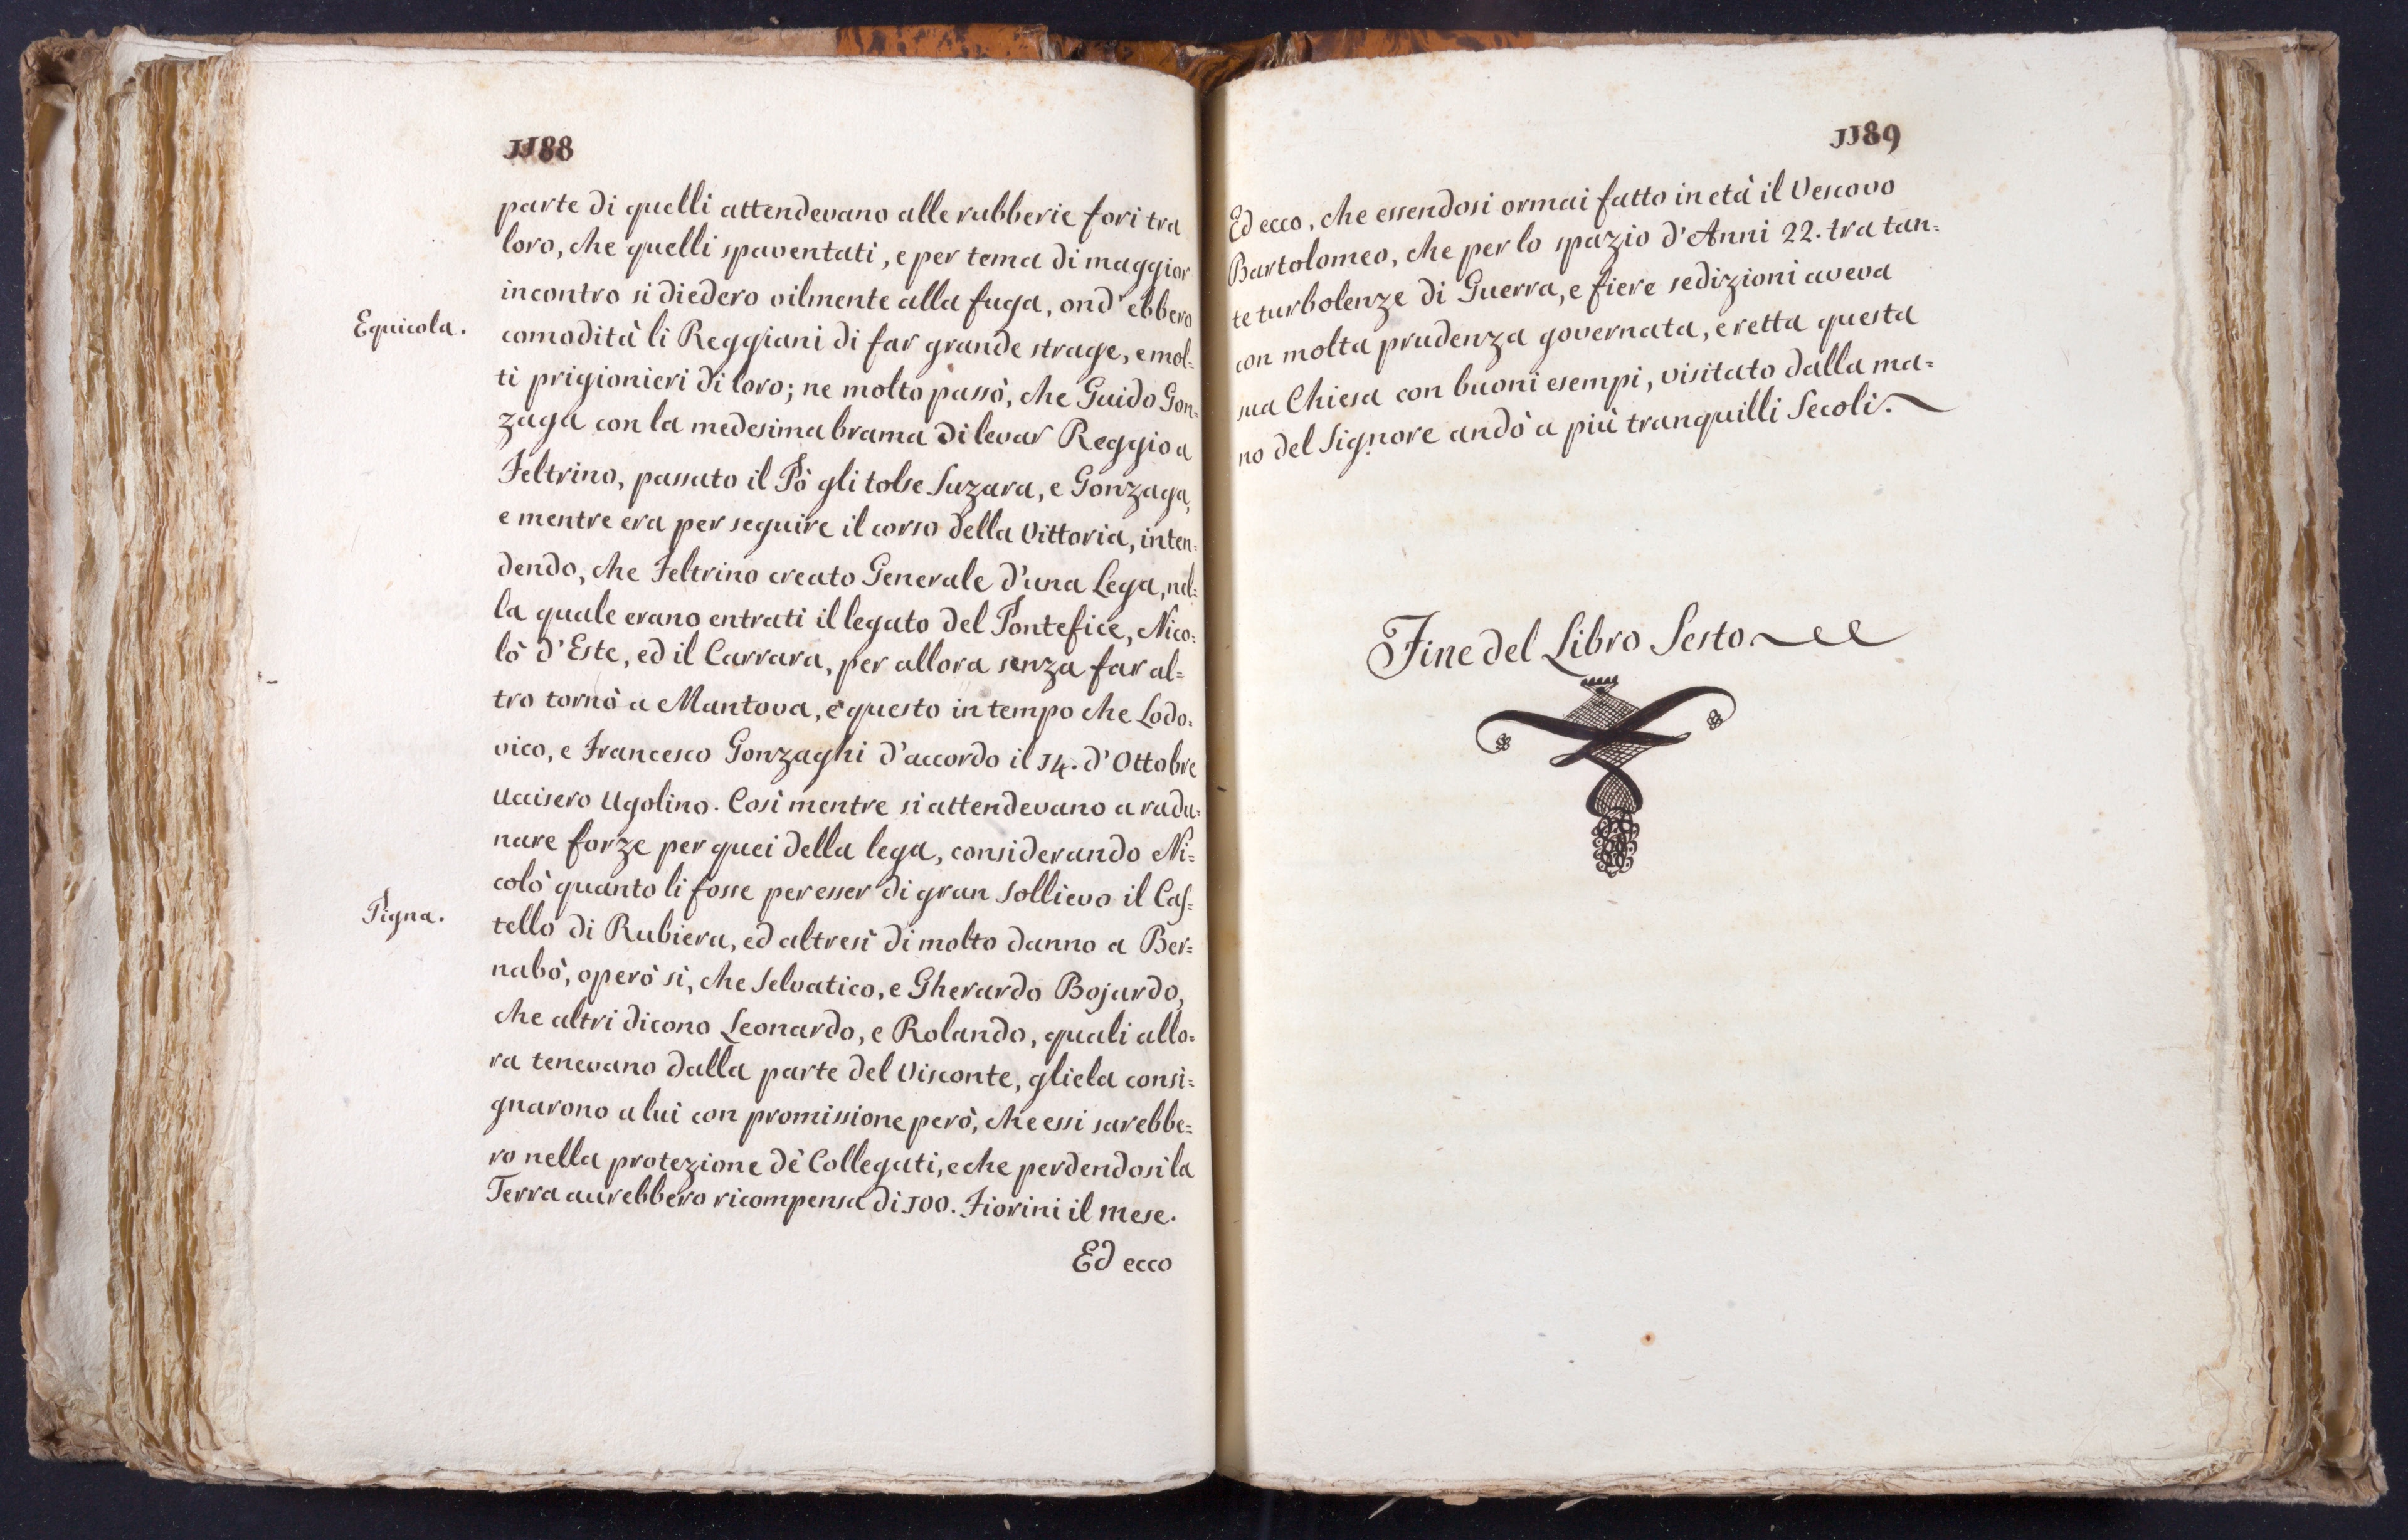 1188
parte di quelli attendevano alle rubberie fori tra
loro, che quelli spaventati, e per tema di maggior
incontro si diedero vilmente alla fuga, ond' ebbero
Equicola.
comodità li Reggiani di far grande strage, e mol=
ti prigionieri di loro; ne molto passò, che Guido Gon=
zaga con la medesima brama di levar Reggio a
Feltrino, passato il Pò gli tolse Suzara, e Gonzaga,
e mentre era per seguire il corso della Vittoria, inten=
dendo, che Feltrino creato Generale d'una Lega, nel=
la quale erano entrati il legato del Pontefice, Nico=
lò d'Este, ed il Carrara, per allora senza far al=
tro tornò a Mantova, e questo in tempo che Lodo=
vico, e Francesco Gonzaghi d'accordo il 14. d'Ottobre
uccisero Ugolino. Così mentre si attendevano a radu=
nare forze per quei della lega, considerando Ni=
colò quanto li fosse per esser di gran sollievo il Cas=
Pigna.
tello di Rubiera, ed altresì di molto danno a Ber=
nabò, operò si, che Selvatico, e Gherardo Bojardo,
che altri dicono Leonardo, e Rolando, quali allo=
ra tenevano dalla parte del Visconte, gliela consi=
gnarono a lui con promissione però, che essi sarebbe=
ro nella protezione dè Collegati, e che perdendosi la
Terra aurebbero ricompensa di 100. Fiorini il mese.
Ed ecco
1189
Ed ecco, che essendosi ormai fatto in età il Vescovo
Bartolomeo, che per lo spazio d'Anni 22. tra tan=
te turbolenze di Guerra, e fiere sedizioni aveva
con molta prudenza governata, e retta questa
sua Chiesa con buoni esempi, visitato dalla ma=
no del Signore andò a più tranquilli Secoli.
Fine del Libro Sesto